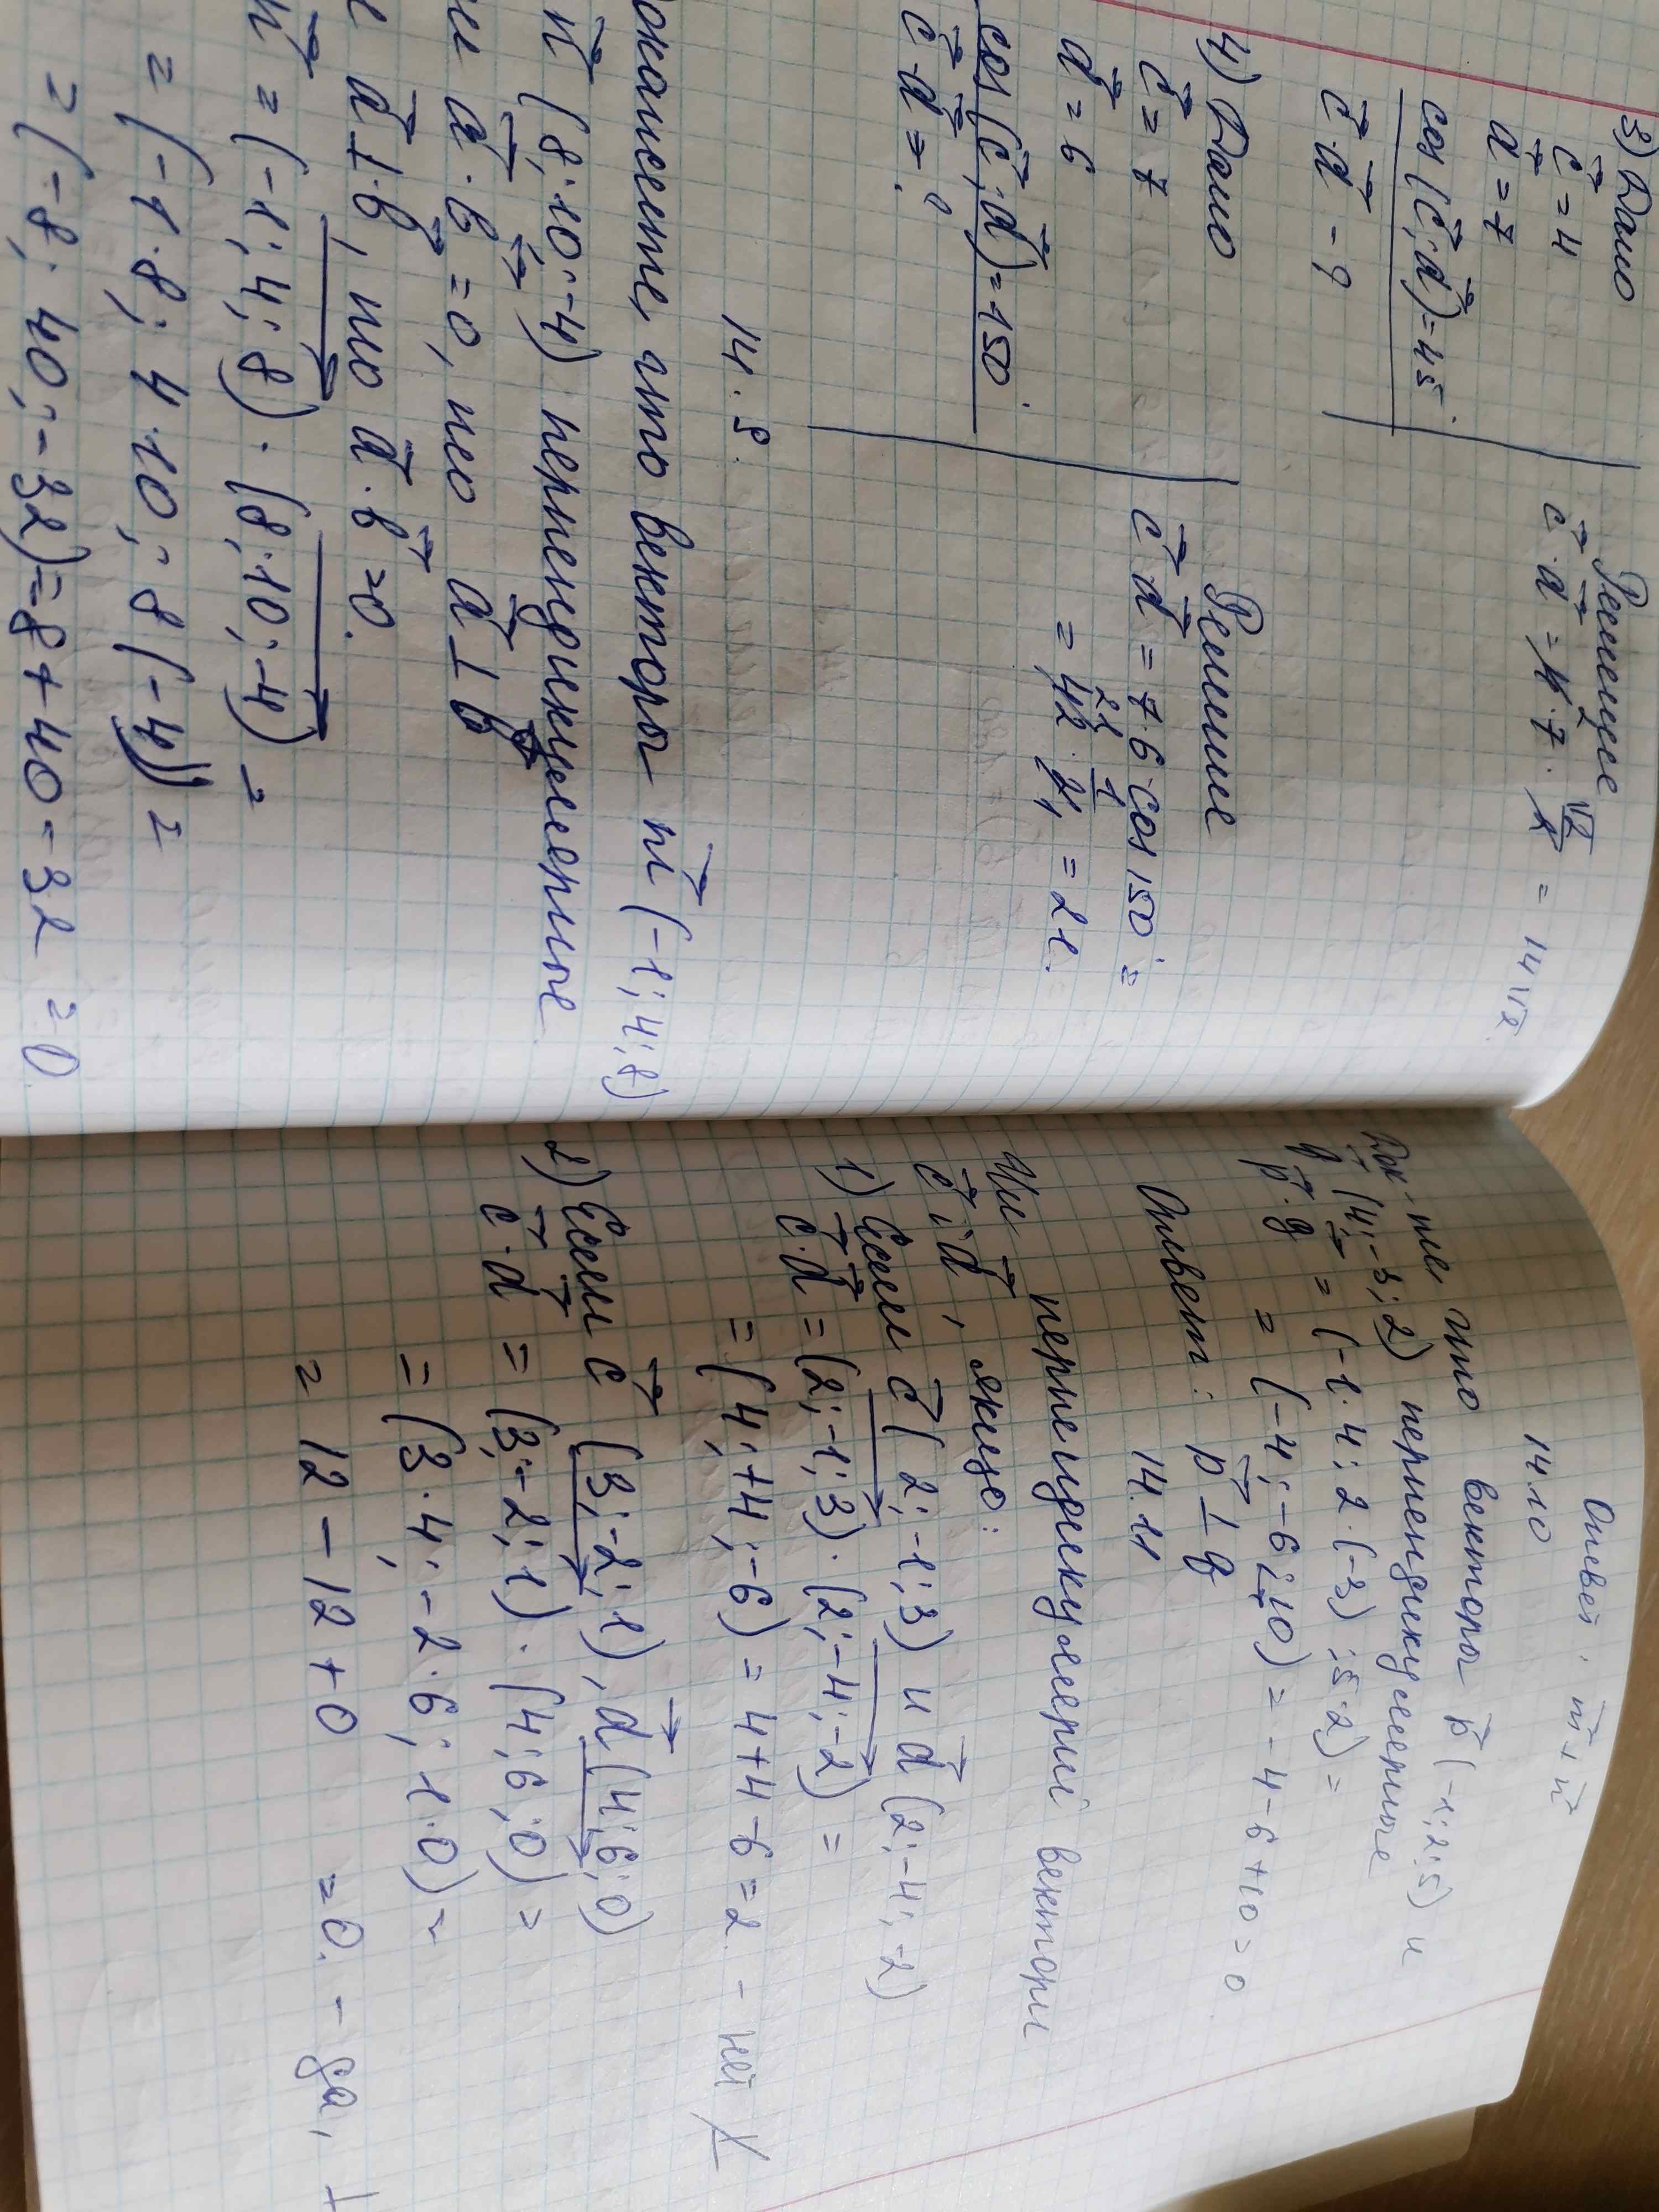 3) Дано
c⃗ = 4
d⃗ = 7
cos (c⃗; d⃗) = 45°
c⃗·d⃗ - ?
Решение
c⃗·d⃗ = 4·7·√2/2 = 14√2
4) Дано
c⃗ = 7
d⃗ = 6
cos (c⃗; d⃗) = 150°
c⃗·d⃗ = ?
Решение
c⃗ d⃗ = 7·6·cos 150° =
= 42 · 1/2 = 21.
14.9.
окажите, что векторы m⃗ (-1; 4; 8)
n⃗ (8; 10; -4) перпендикулярные
a⃗·b⃗ = 0, то a⃗ ⊥ b⃗
a⃗ ⊥ b⃗, то a⃗·b⃗ = 0.
n⃗ = (-1; 4; 8) · (8; 10; -4) =
= (-1·8; 4·10; 8(-4)) =
= (-8; 40; -32) = -8 + 40 - 32 = 0.
Ответ: m⃗ ⊥ n⃗
14.10
Док-ть, что векторы p⃗ (-1; 2; 5) и
q⃗ (4; -3; 2) перпендикулярные
p⃗·q⃗ = (-1·4; 2·(-3); 5·2) =
= (-4; -6; +10) = -4 - 6 + 10 = 0
Ответ: p⃗ ⊥ q⃗
14.11
Чи перпендикулярні вектори
c⃗ і d⃗, якщо:
1) Если c⃗ (2; -1; 3) и d⃗ (2; -4; -2)
c⃗·d⃗ = (2; -1; 3) · (2; -4; -2) =
= (4; +4; -6) = 4 + 4 - 6 = 2 - нет
2) Если c⃗ (3; -2; 1), d⃗ (4; 6; 0)
c⃗·d⃗ = (3; -2; 1) · (4; 6; 0) =
= (3·4; -2·6; 1·0) =
= 12 - 12 + 0 = 0. - да, ⊥